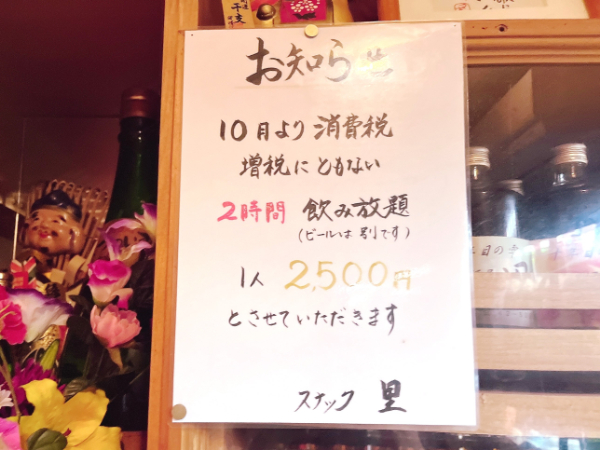 お知らせ
10月より消費税
増税にともない
2時間 飲み放題
(ビールは別です)
1人 2,500円
とさせていただきます
スナック 里